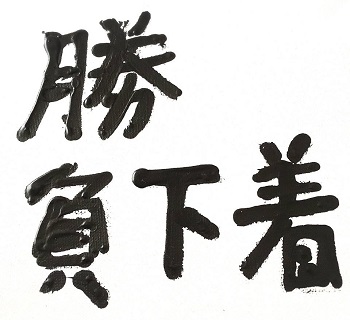 勝
負下着